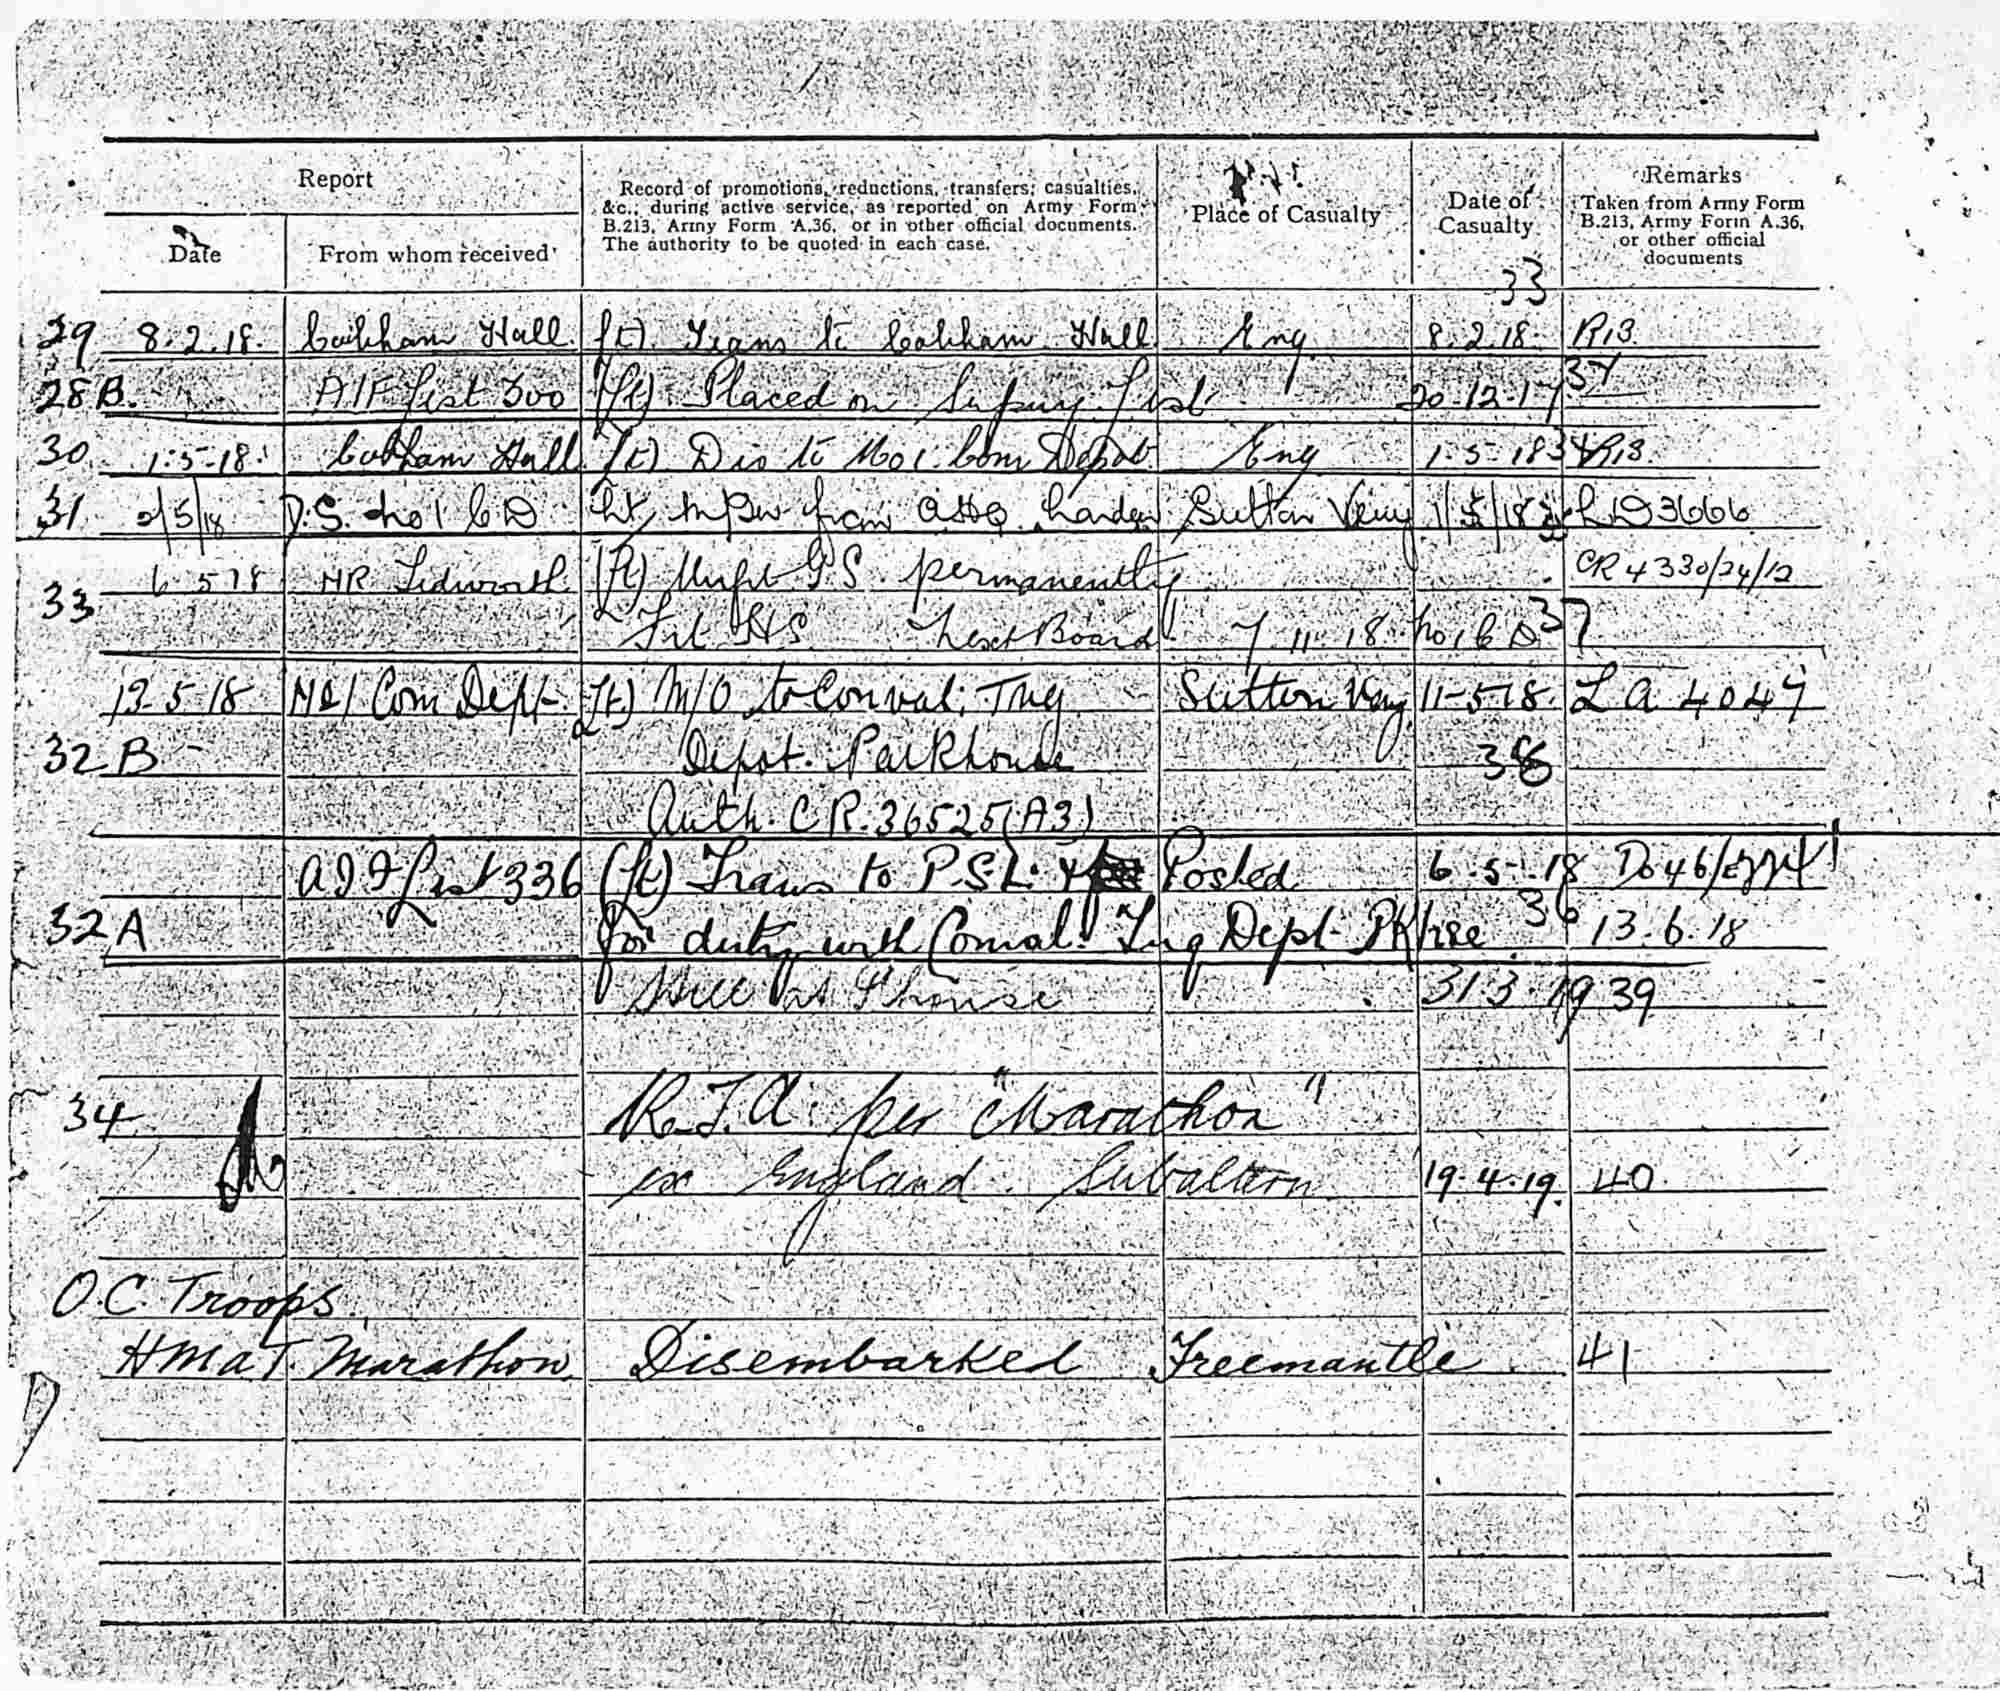 Report
Record of promotions, reductions, transfers, casualties,
&c., during active service, as reported on Army Form
B.213, Army Form A.36, or in other official documents.
The authority to be quoted in each case.
Place of Casualty
Date of
Casualty
Remarks
Taken from Army Form
B.213, Army Form A.36,
or other official
documents
Date
From whom received
33
29 8.2.18. Cobham Hall (Lt) Trans to Cobham Hall Eng 8.2.18. R13
28B. AIF List 300 (Lt) Placed on Supury List 20-12-17 34
30 1-5-18. Cobham Hall (Lt) Dis to No 1. Com Depot Eng 1-5-18 34 R13.
31 2/5/18 D.S. No 1 CD Lt from AHQ London Sutton Veny 1/5/18 LD3666
33 6 5 18 HR Tidworth (Lt) Unfit GS permanently CR4330/24/12
Fit HS Next Board 7 11 18 No 1 CD 37
13-5-18 No 1 Com Dept. (Lt) M/O to Conval. Tng Sutton Veny 11-5-18. LA 4047
32B Depot. Parkhouse 38
Auth. CR.36525(A3)
AIF List 336 (Lt) Trans to P.S.L. & Posted 6-5-18 Do46/
32A for duty with Conval. Tng Dept Pkhse 36 13.6.18
Still at P'house 31 3 19 39
34 R.T.A. per "Marathon"
ex England. Subaltern 19.4.19. 40
O.C. Troops.
HMAT. Marathon. Disembarked Freemantle 41